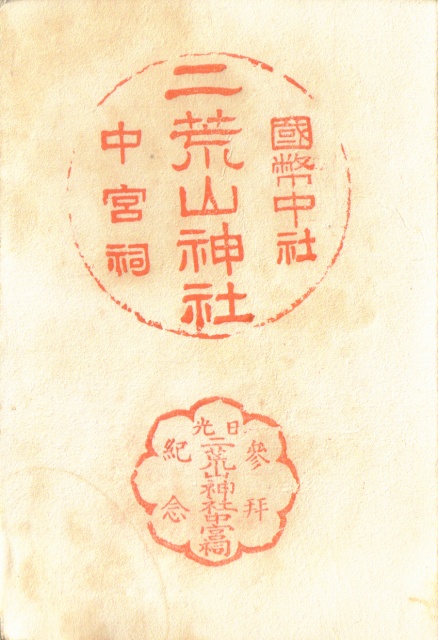 國幣中社
二荒山神社
中宮祠
日光
參拜
二荒山神社中宮祠
紀念